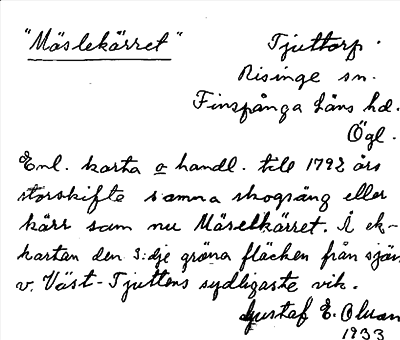 "Mäslekärret"
Tjuttorp.
Risinge sn.
Finspånga läns hd.
Ögl.
Enl. karta o handl. till 1792 års
storskifte samma skogsäng eller
kärr som nu Mäselkärret. Å ek-
kartan den 3:dje gröna fläcken från sjön
v. Väst-Tjuttens sydligaste vik.
Gustaf E. Olsson
1933